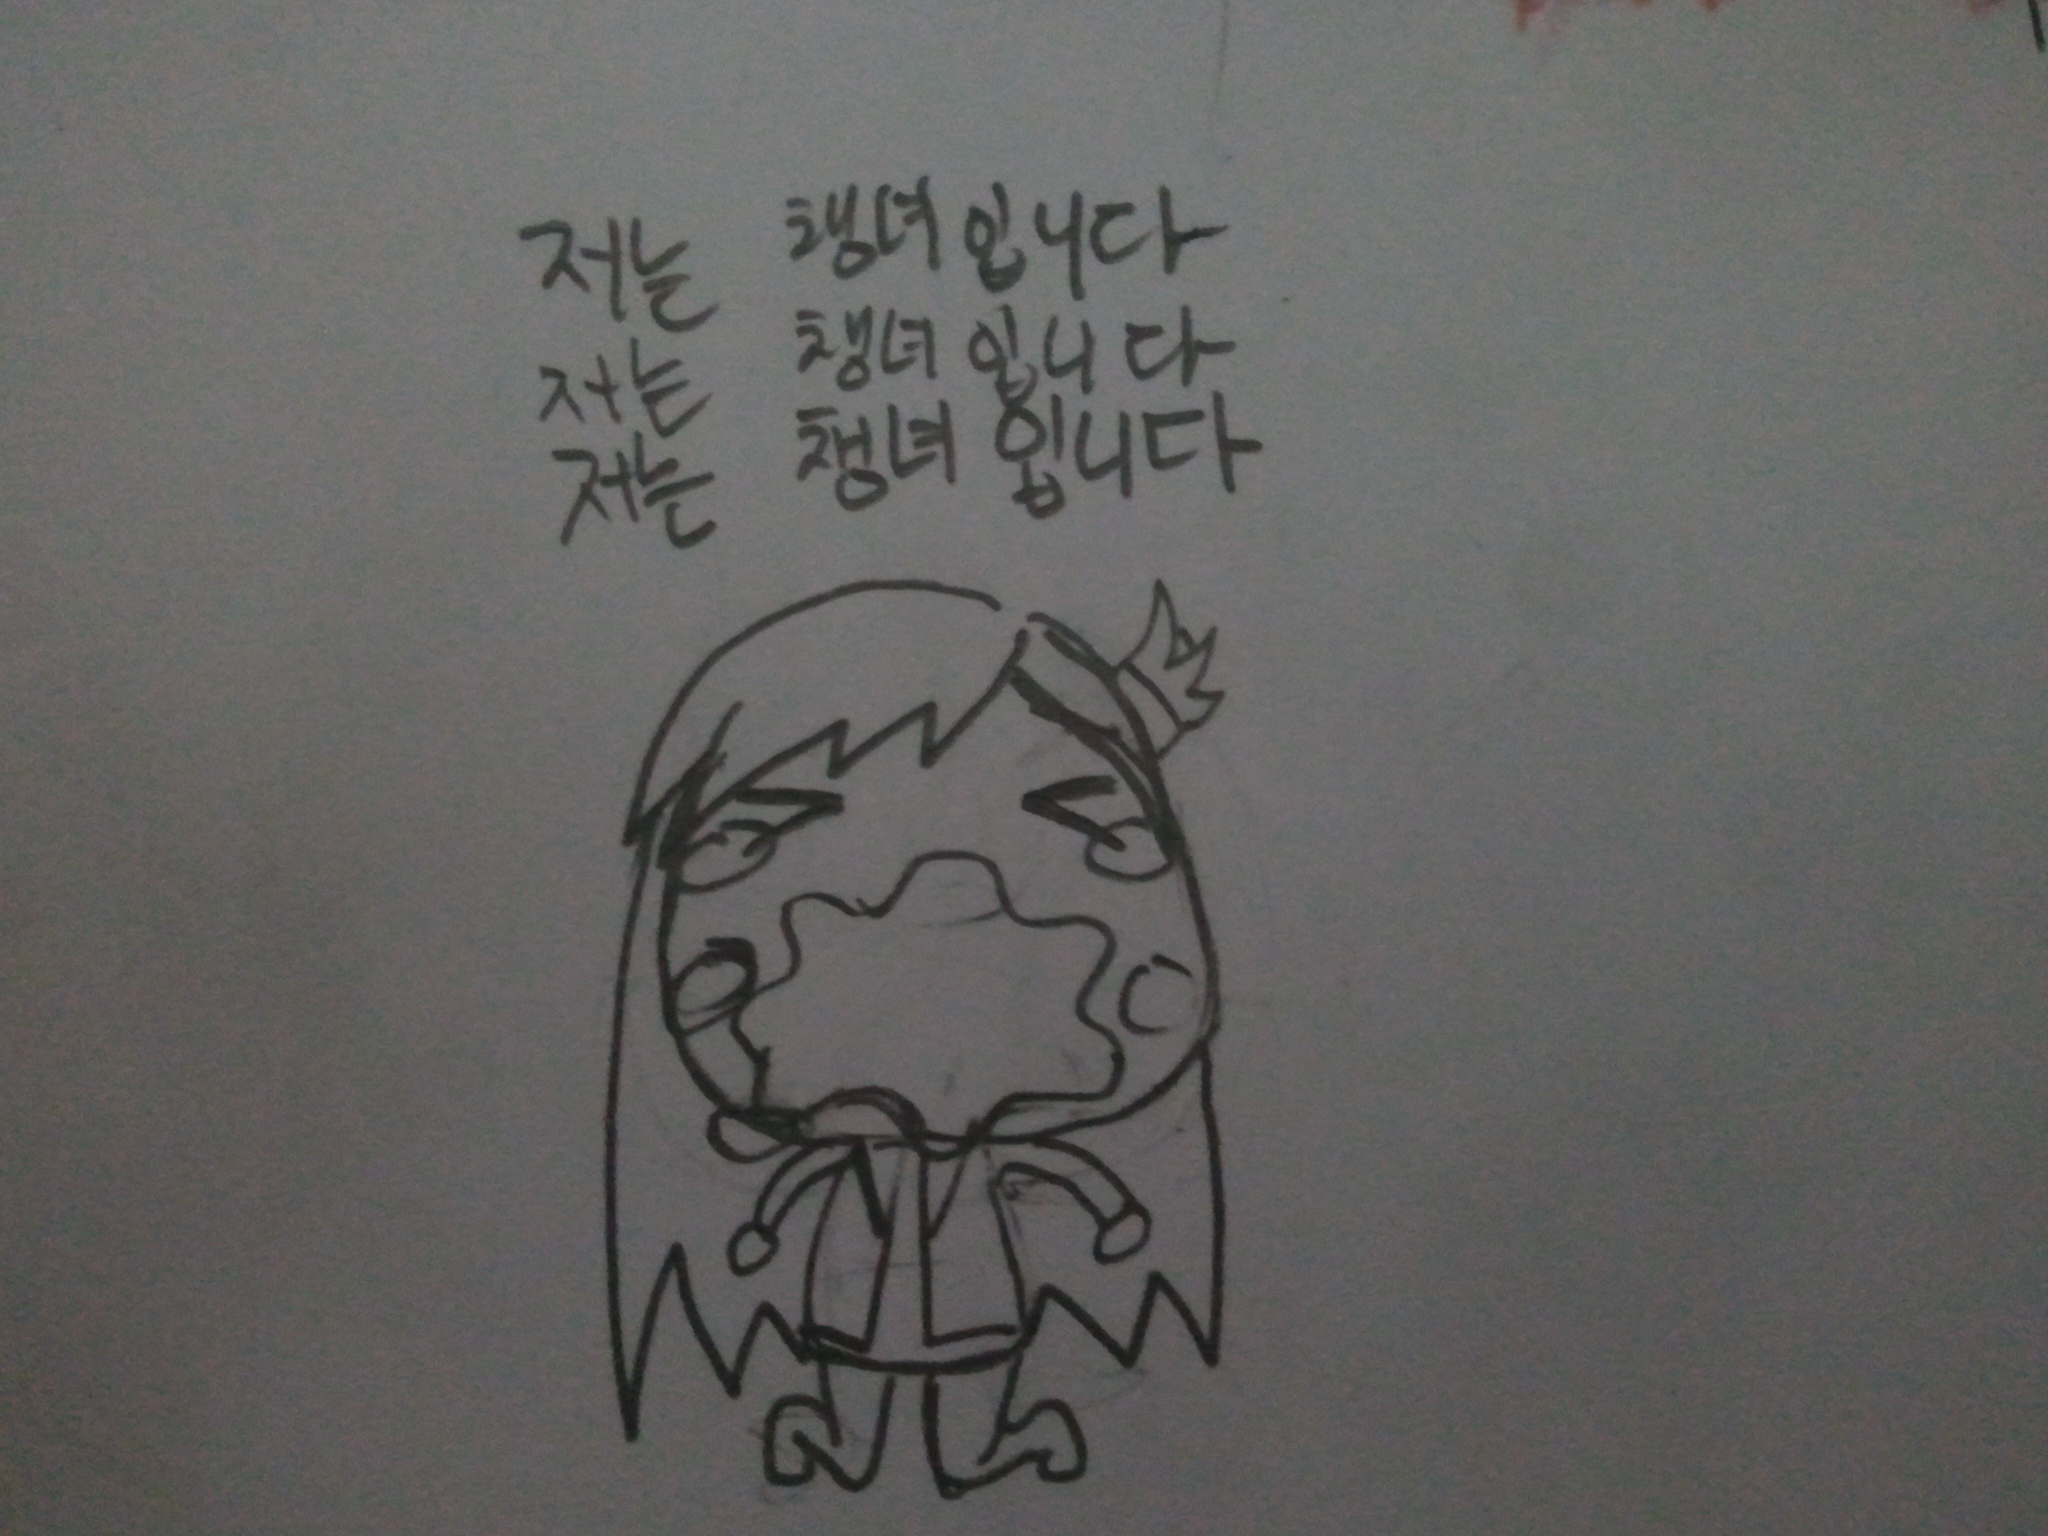 저는 챙녀입니다
저는 챙녀입니다
저는 챙녀입니다